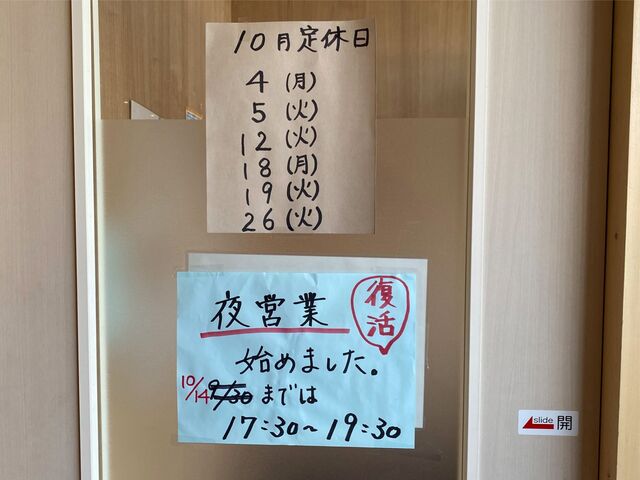 10月定休日
4(月)
5(火)
12(火)
18(月)
19(火)
26(火)
復活
夜営業
始めました。
10/14 9/30 までは
17:30~19:30
slide 開